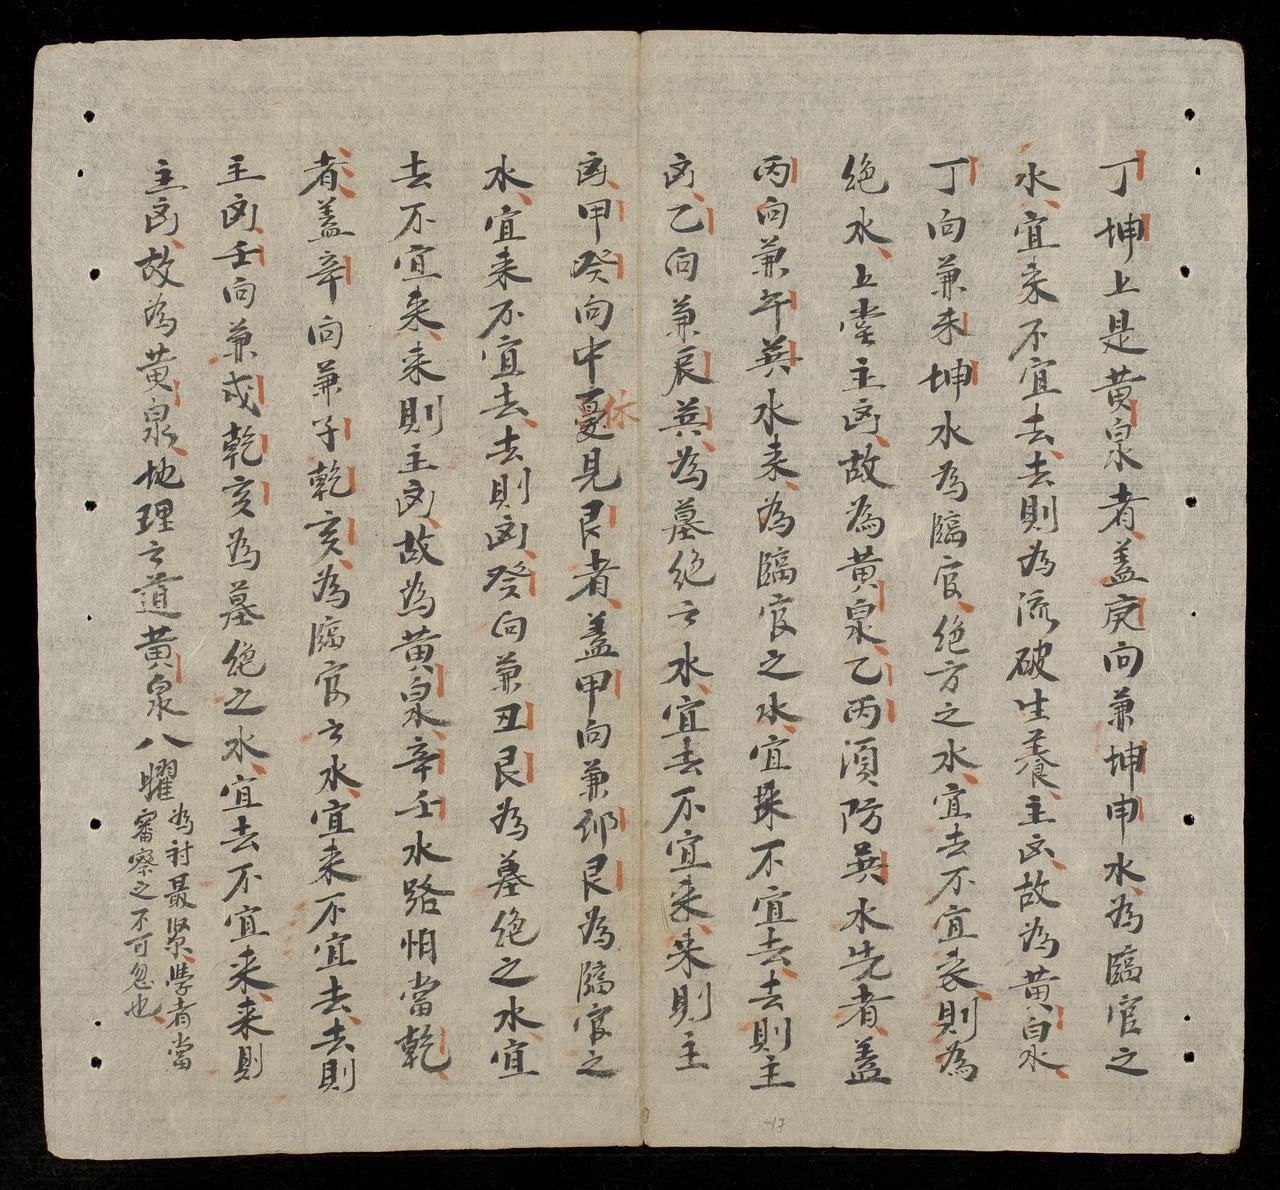 丁坤上是黄泉者盖庚向兼坤申水為臨官之
水宜来不宜去去則為流破生養主凶故為黄泉
丁向兼未坤水為臨官絶方之水宜去不宜来則為
絶水上堂主凶故為黄泉乙丙須防巽水先者盖
丙向兼午巽水来為臨官之水宜来不宜去去則主
凶乙向兼辰巽為墓絶之水宜去不宜来来則主
凶甲癸向中憂見艮者盖甲向兼卯艮為臨官之
休
水宜来不宜去去則凶癸向兼丑艮為墓絶之水宜
去不宜来来則主凶故為黄泉辛壬水路怕當乾
者盖辛向兼子乾亥為臨官之水宜来不宜去去則
主凶壬向兼戌乾亥為墓絶之水宜去不宜来来則
主凶故為黄泉地理之道黄泉八曜
為討最緊學者當
審察之不可忽也
17